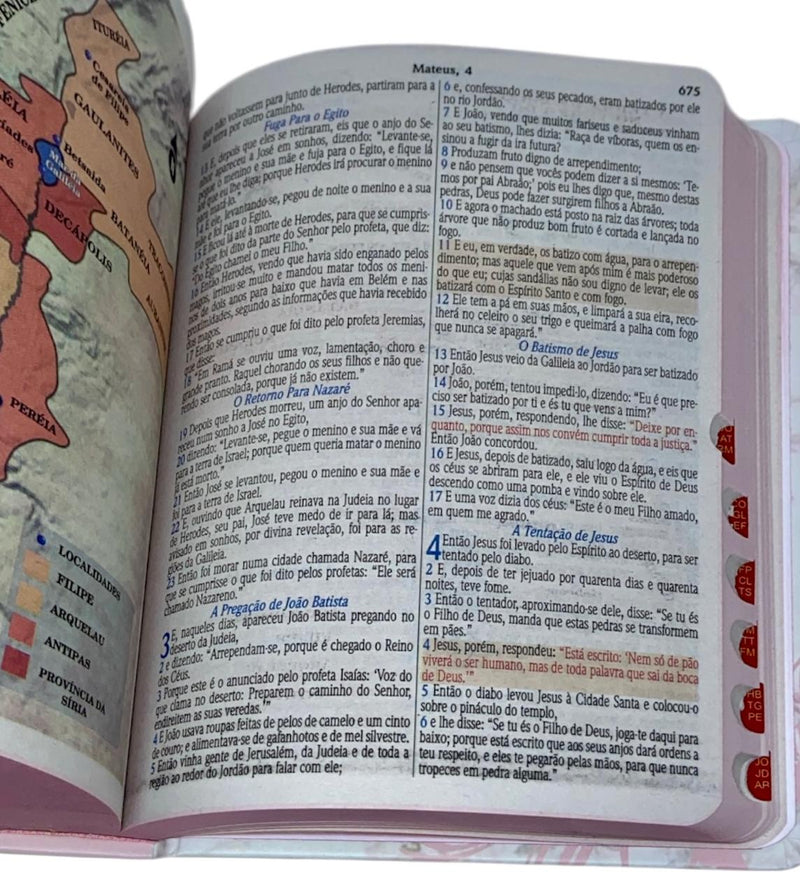 FENÍC
ITURÉIA
Cesareia
de Filipe
GAULANITES
Betsaida
Mar da
Galileia
DECÁPOLIS
BATANÉIA
PERÉIA
LOCALIDADES
FILIPE
ARQUELAU
ANTIPAS
PROVÍNCIA DA
SÍRIA
Mateus, 4
675
que não voltassem para junto de Herodes, partiram para a
sua terra por outro caminho.
Fuga Para o Egito
13 E, depois que eles se retiraram, eis que o anjo do Se-
nhor apareceu a José em sonhos, dizendo: “Levante-se,
pegue o menino e sua mãe e fuja para o Egito, e fique lá
até que eu lhe diga; porque Herodes irá procurar o menino
para matá-lo.”
14 E ele, levantando-se, pegou de noite o menino e a sua
mãe e foi para o Egito.
15 E ficou lá até à morte de Herodes, para que se cumpris-
se o que foi dito da parte do Senhor pelo profeta, que diz:
“Do Egito chamei o meu Filho.”
16 Então Herodes, vendo que havia sido enganado pelos
magos, irritou-se muito e mandou matar todos os meni-
nos de dois anos para baixo que havia em Belém e nas
proximidades, segundo as informações que havia recebido
dos magos.
17 Então se cumpriu o que foi dito pelo profeta Jeremias,
que disse:
18 “Em Ramá se ouviu uma voz, lamentação, choro e
grande pranto. Raquel chorando os seus filhos e não que-
rendo ser consolada, porque já não existem.”
O Retorno Para Nazaré
19 Depois que Herodes morreu, um anjo do Senhor apa-
receu num sonho a José no Egito,
20 dizendo: “Levante-se, pegue o menino e sua mãe e vá
para a terra de Israel; porque quem queria matar o menino
já está morto.”
21 Então José se levantou, pegou o menino e sua mãe e
foi para a terra de Israel.
22 E, ouvindo que Arquelau reinava na Judeia no lugar
de Herodes, seu pai, José teve medo de ir para lá; mas
avisado em sonhos, por divina revelação, foi para as re-
giões da Galileia.
23 Então foi morar numa cidade chamada Nazaré, para
que se cumprisse o que foi dito pelos profetas: “Ele será
chamado Nazareno.”
A Pregação de João Batista
3 E, naqueles dias, apareceu João Batista pregando no
deserto da Judeia,
2 e dizendo: “Arrependam-se, porque é chegado o Reino
dos Céus.
3 Porque este é o anunciado pelo profeta Isaías: ‘Voz do
que clama no deserto: Preparem o caminho do Senhor,
endireitem as suas veredas.’”
4 E João usava roupas feitas de pelos de camelo e um cinto
de couro; e alimentava-se de gafanhotos e de mel silvestre.
5 Então vinha gente de Jerusalém, da Judeia e de toda a
região ao redor do Jordão para falar com ele;
6 e, confessando os seus pecados, eram batizados por ele
no rio Jordão.
7 E João, vendo que muitos fariseus e saduceus vinham
ao seu batismo, lhes dizia: “Raça de víboras, quem os en-
sinou a fugir da ira futura?
8 Produzam fruto digno de arrependimento;
9 e não pensem que vocês podem dizer a si mesmos: ‘Te-
mos por pai Abraão;’ pois eu lhes digo que, mesmo destas
pedras, Deus pode fazer surgirem filhos a Abraão.
10 E agora o machado está posto na raiz das árvores; toda
árvore que não produz bom fruto é cortada e lançada no
fogo.
11 E eu, em verdade, os batizo com água, para o arrepen-
dimento; mas aquele que vem após mim é mais poderoso
do que eu; cujas sandálias não sou digno de levar; ele os
batizará com o Espírito Santo e com fogo.
12 Ele tem a pá em suas mãos, e limpará a sua eira, reco-
lherá no celeiro o seu trigo e queimará a palha com fogo
que nunca se apagará.”
O Batismo de Jesus
13 Então Jesus veio da Galileia ao Jordão para ser batizado
por João.
14 João, porém, tentou impedi-lo, dizendo: “Eu é que pre-
ciso ser batizado por ti e és tu que vens a mim?”
15 Jesus, porém, respondendo, lhe disse: “Deixe por en-
quanto, porque assim nos convém cumprir toda a justiça.”
Então João concordou.
16 E Jesus, depois de batizado, saiu logo da água, e eis que
os céus se abriram para ele, e ele viu o Espírito de Deus
descendo como uma pomba e vindo sobre ele.
17 E uma voz dizia dos céus: “Este é o meu Filho amado,
em quem me agrado.”
A Tentação de Jesus
4 Então Jesus foi levado pelo Espírito ao deserto, para ser
tentado pelo diabo.
2 E, depois de ter jejuado por quarenta dias e quarenta
noites, teve fome.
3 Então o tentador, aproximando-se dele, disse: “Se tu és
o Filho de Deus, manda que estas pedras se transformem
em pães.”
4 Jesus, porém, respondeu: “Está escrito: ‘Nem só de pão
viverá o ser humano, mas de toda palavra que sai da boca
de Deus.’”
5 Então o diabo levou Jesus à Cidade Santa e colocou-o
sobre o pináculo do templo,
6 e lhe disse: “Se tu és o Filho de Deus, joga-te daqui para
baixo; porque está escrito que aos seus anjos dará ordens a
teu respeito, e eles te pegarão pelas mãos, para que nunca
tropeces em pedra alguma.”
AT
RM
GL
EF
FP
CL
TS
TT
FM
HB
TG
PE
JO
JD
AR